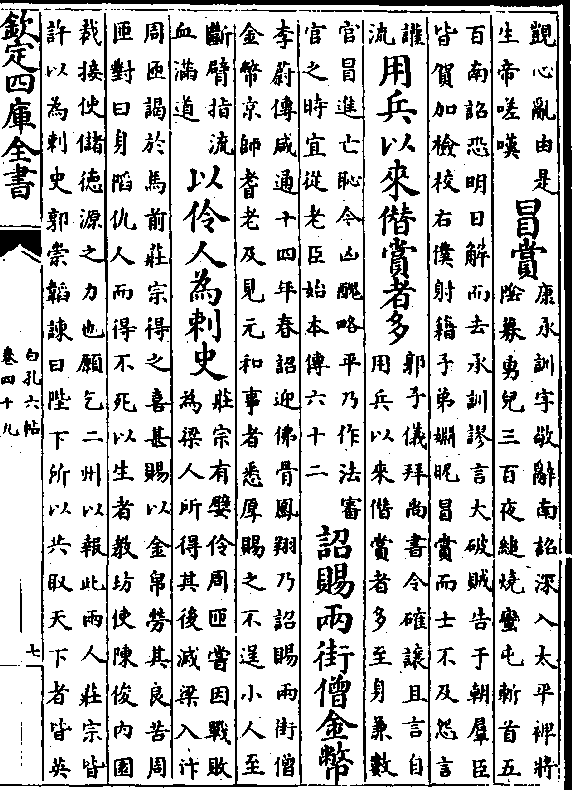 觀心亂由是
生帝嗟嘆
冒賞
康承訓字敬辭南詔深入太平裨將
陰募勇兒三百夜縋燒蠻屯斬首五
百南詔恐明日解而去承訓謬言大破賊告于朝羣臣
皆賀加檢校右僕射籍子弟姻昵冒賞而士不及怨言
讙
流
用兵以來僭賞者多
郭子儀拜尚書令確讓且言自
用兵以來僭賞者多至身兼數
官冒進亡恥今凶醜略平乃作法審
官之時宜從老臣始本傳六十二
詔賜兩街僧金幣
李蔚傳咸通十四年春詔迎佛骨鳳翔乃詔賜兩街僧
金幣京師耆老及見元和事者悉厚賜之不逞小人至
斷臂指流
血滿道
以伶人為刺史
莊宗有嬖伶周匝嘗因戰敗
為梁人所得其後滅梁入汴
周匝謁於馬前莊宗得之喜甚賜以金帛勞其良苦周
匝對曰身陷仇人而得不死以生者教坊使陳俊内園
栽接使儲德源之力也願乞二州以報此兩人莊宗皆
許以為刺史郭崇韜諫曰陛下所以共取天下者皆英
欽定四庫全書
白孔六帖
卷四十九
七